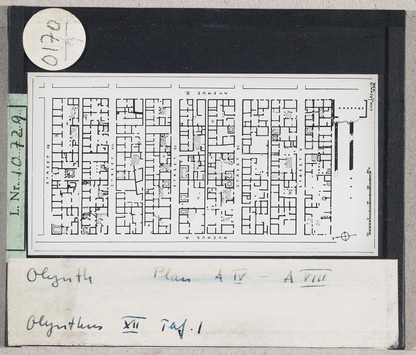 0170
I. Nr. 10.729
AVENUE B
AVENUE A
Olynth Plan A IV – A VIII
Olynthus XII Taf. 1